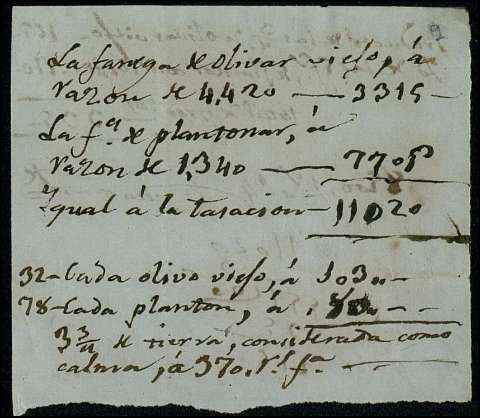 La fanega de olivar viejo, á
razon de 4,420 — 3315
La f.ª de plantonar, á
razon de 1,340 — 7705
Ygual á la tasacion — 11020
32 - Cada olivo viejo, á 103 "
78 - Cada planton, á
3 3/4 de tierra, considerada como
calma, á 370 r.s f.ª —